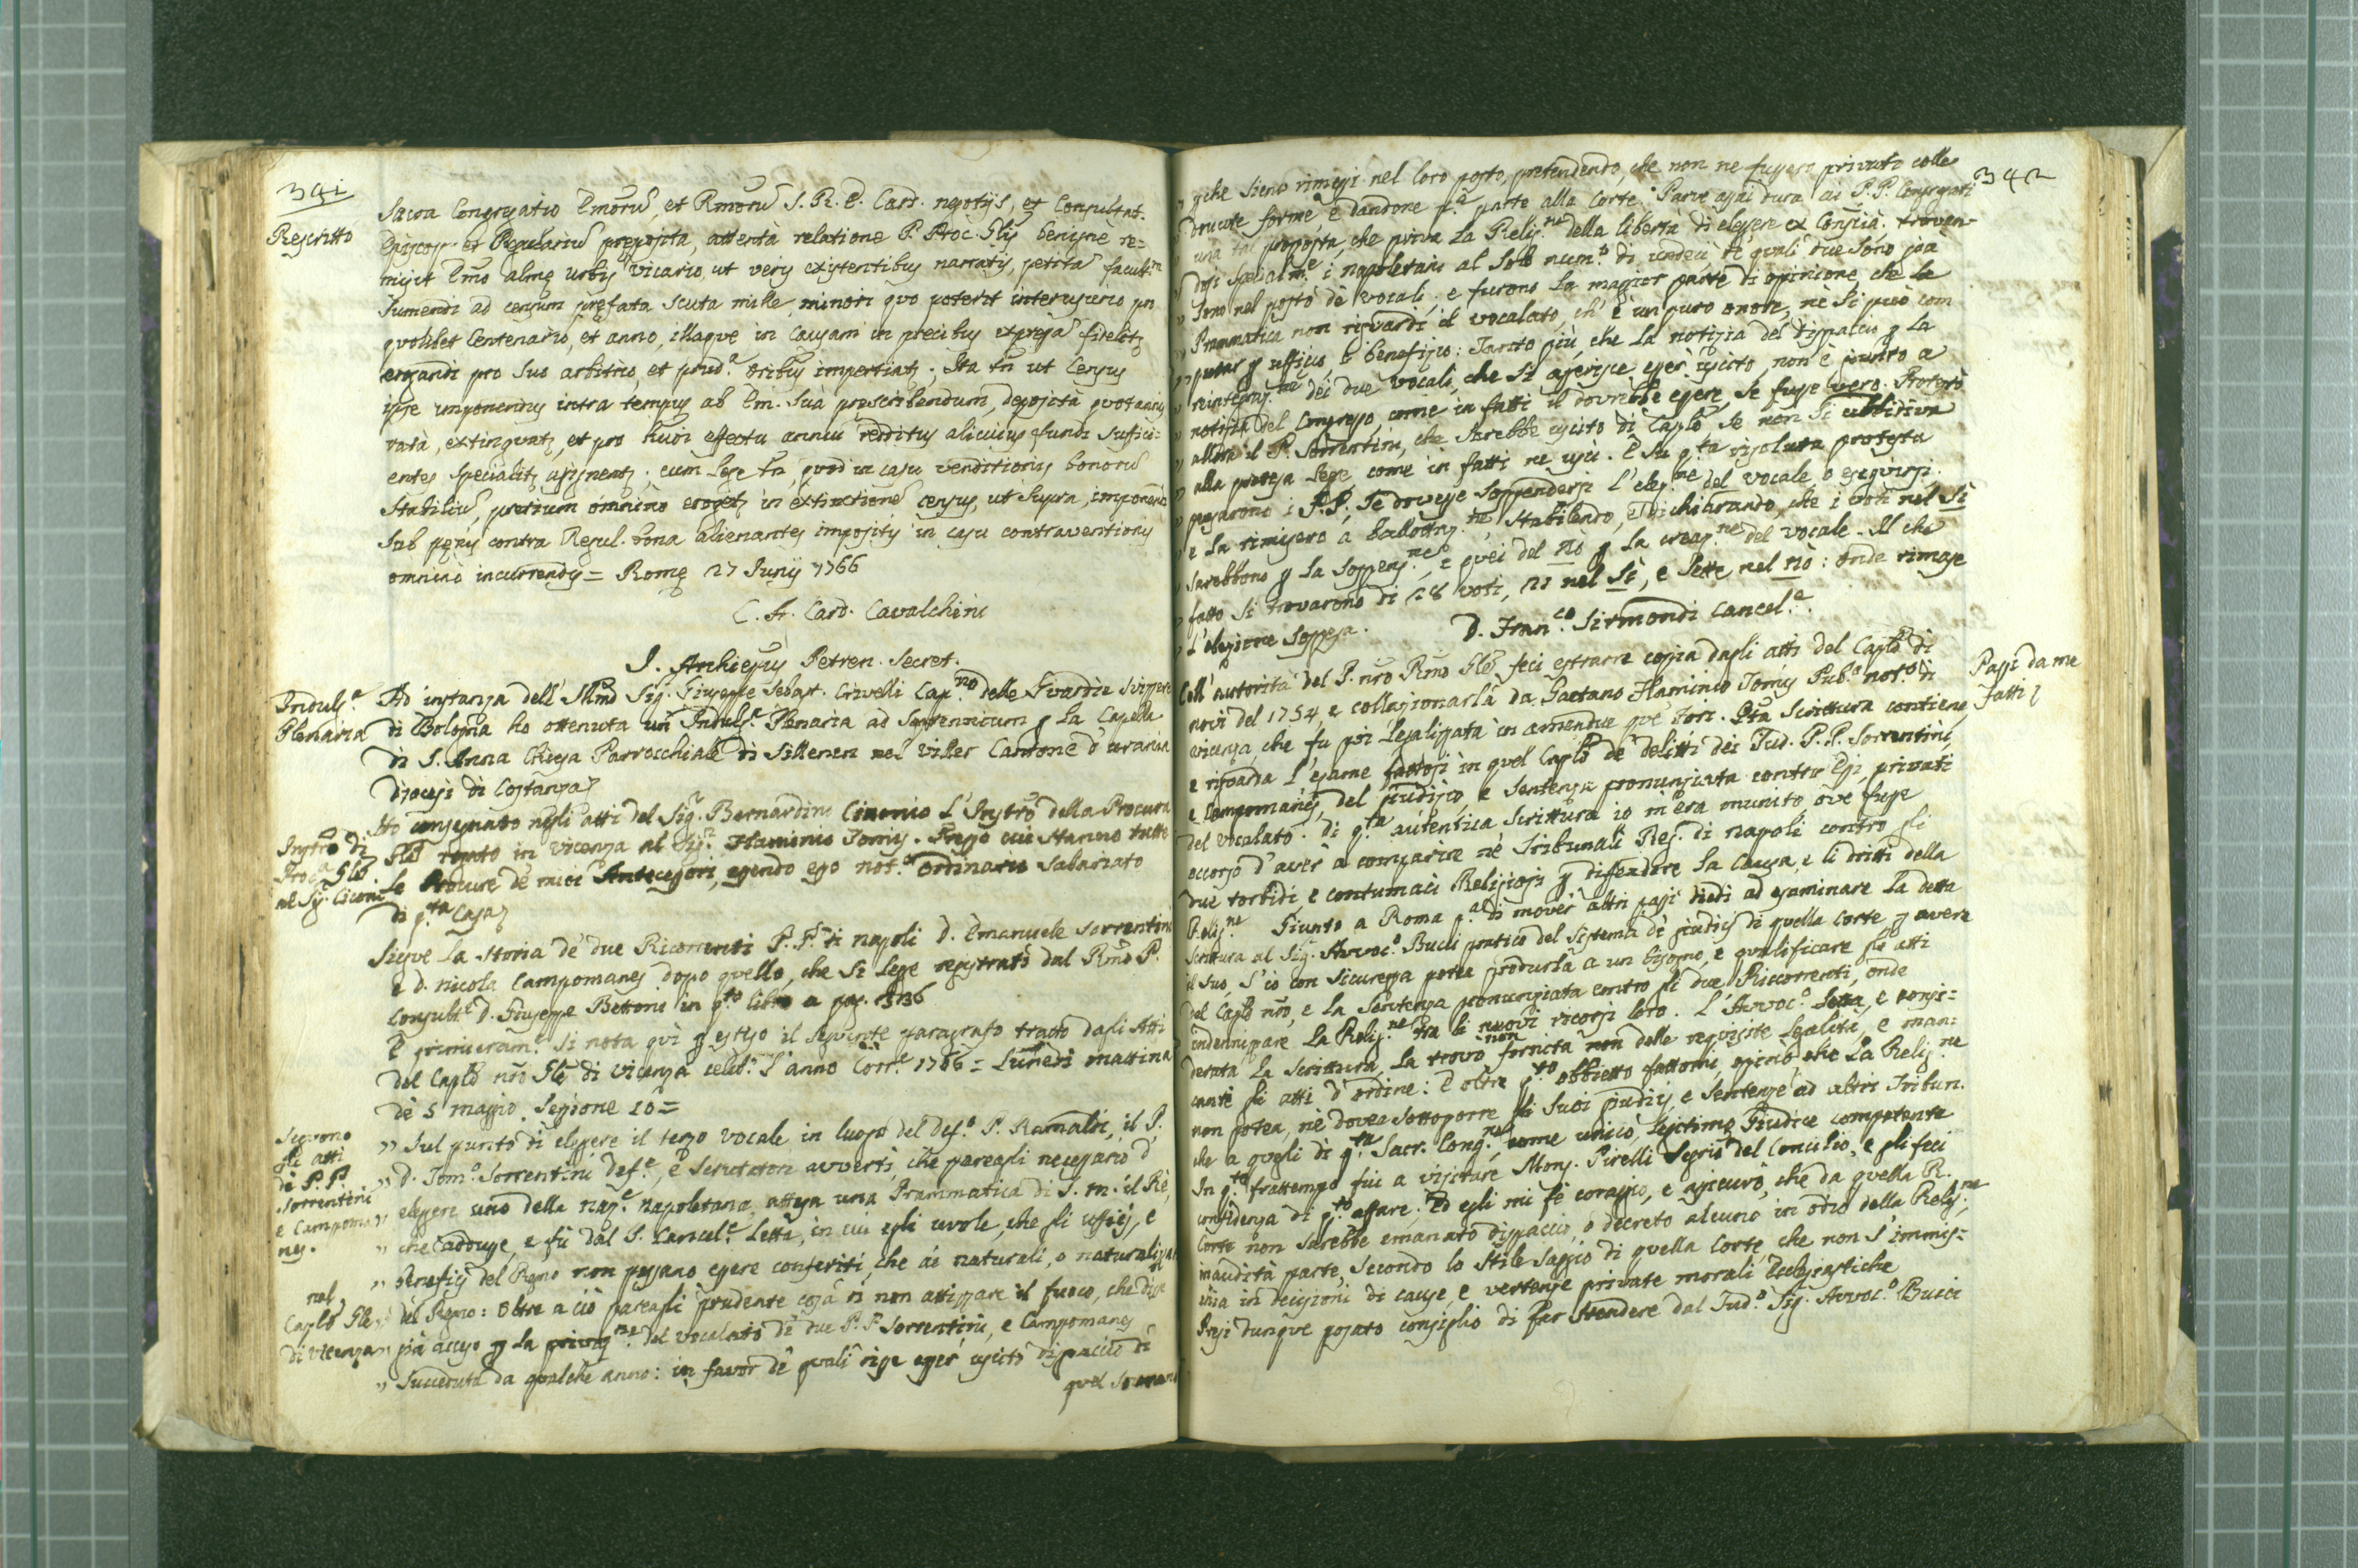 341
Rescritto
Sacra Congregatio Emorū, et Rmorū S. R. E. Card. negotijs, et Consultat.
Episcop. et Regulariū preposita, attenta relatione P. Proc. Glis benignè re=
misit Emo almę urbis Vicario, ut veris existentibus narratis, petitā facultm
sumendi ad censum prefata scuta mille, minori quo poterit interusurio pro
quolibet Centenario, et anno, illaque in causam in precibus expressā fidelitr
erogandi pro suo arbitrio, et prud.a Oribus impertiatr. Ita tn ut Census
ipse imponendus intra tempus ab Em. Sua prescribendum, deposita quotannis
rata, extinguatr, et pro huiusmodi effectu annui redditus alicuius fundi suffici=
entes specialitr assignentr. cum lege tn, quod in casu venditionis bonorū
stabiliū, pretium omnino erogetr in extinctionē census, ut supra, imponendi
sub pęnis contra Regul. bona alienantes impositis in casu contraventionis
omnino incurrendis = Romę 27 Junij 1766
C. A. Card. Cavalchini
J. Archiepus Petren. Secret.
Indulg.a
Plenaria
Ad instanza dell' Illmo Sig. Giuseppe Sebast. Crivelli Cap.no delle Guardie Svizzere
di Bologna ho ottenuta un' Indulg.a Plenaria ad Septennium p la Capella
di S. Anna Chiesa Parrocchiale di Sillenen nel Viller Cantone d' Urania
Diocesi di Costanza
Instro di
Proc.a Gle
al Sig. Ciconi
Ho consegnato negli atti del Sig.r Bernardino Ciconio L' Instro della Procura
Gle rogato in Vicenza al Sig.r Flaminio Tornis. Presso cui stanno tutte
le Procure de' miei Antecessori, essendo ego not.o ordinario salariato
di q.ta Casa
Siegue la storia de' due Ricorrenti P. P. di Napoli D. Emanuele Sorrentini
e D. Nicola Campomanes dopo quello, che si legge registrato dal Rmo P.
Consult.e D. Giuseppe Bettoni in q.to libro a pag. 336
E primieram.e si nota quì p esteso il seguente paragrafo tratto dagli Atti
del Caplo nro Gle di Vicenza celeb.o l' anno Corr.e 1766 = Lunedì mattina
de' 5 maggio. Sessione 10 =
Seguono
gli atti
de' P. P.
Sorrentini
e Campoma
nes.
nel
Caplo Gle
di Vicenza
„ Sul punto di eleggere il terzo vocale in luogo del def.o P. Ramaldi, il P.
„ D. Tom.o Sorrentini Def.e, e Scrutatore avvertì, che pareagli necessario d'
„ eleggere uno della naz.e Napoletana, attesa una Prammatica di S. M. il Rè,
„ che addusse, e fù dal S. Cancel.e Letta, in cui egli vuole, che gli uffizj, e
„ benefizj del Regno non possano essere conferiti, che ai naturali, o naturalizzati
„ del Regno: Oltre a ciò pareagli prudente cosa di non attizzare il fuoco, che disse
„ già acceso p la privaz.ne del vocalato de' due P. P. Sorrentini, e Campomanes
„ succeduta da qualche anno: in favor de' quali disse esser uscito dispaccio di
quel Sovrano
342
„ che sieno rimessi nel loro posto, pretendendo, che non ne fussero privato colle
„ dovute forme, e dandone p.a parte alla Corte. Parve assai dura ai P. P. Congregati
„ una tal proposta, che priva la Relig.ne della libertà di eleggere ex Conscia. trovan-
„ dosi specialm.e i Napoletani al solo num.o di undeci, de' quali due sono già
„ sono nel posto de' vocali; e furono la maggior parte di opinione, che la
„ Prammatica non riguardi il vocalato, ch' è un puro onore, nè si può com
„ putar p uffizio, o benefizio: Tanto più, che la notizia del dispaccio p la
„ reintegraz.ne dei due vocali, che si asserisce esser uscito, non è punto a
„ notizia del Congresso, come in fatti il dovrebbe essere, se fusse vero. Protestò
„ allora il P. Sorrentini, che sarebbe uscito di Caplo se non si ubbidiva
„ alla pretesa legge, come in fatti ne uscì. E su q.ta risoluta protesta
„ pensarono i P.P. se dovesse sospendersi l' elez.ne del vocale, o eseguirsi.
„ e la rimisero a ballottaz.ne, stabilendo, e dichiarando, che i voti nel Sì
„ sarebbono p la sospens.ne, e quei del nò p la creaz.ne del vocale. Il che
„ fatto si trovarono di 28 voti, 21 nel Sì, e sette nel nò: onde rimase
„ l' elezione sospesa.
D. Fran.co Sirmondi Cancel.e.
Passi da me
fatti
Coll' autorità del P. nro Rmo Gle feci estrarre copia dagli atti del Caplo di
novi del 1754, e collazionarla da Gaetano Flaminio Tornis Pub.o not.o di
Vicenza, che fu poi legalizzata in amendue que' Fori. Q.ta Scrittura contiene,
e risguarda l' esame fattosi in quel Caplo de' delitti dei sud. P.P. Sorrentini,
e Campomanes, del giudizio, e sentenza pronunziata contro Essi, privati
del vocalato. Di q.ta autentica Scrittura io m' era munito ove fusse
occorso d' aver a comparire ne' Tribunali Reg. di Napoli contro gli
due torbidi, e contumaci Religiosi p diffendere la Causa, e li dritti della
Relig.ne Giunto a Roma p.a di mover altri passi diedi ad esaminare la detta
scrittura al Sig. Avvoc.o Bucci pratico del sistema de' giudizj di quella Corte p avere
il suo, s' io con sicurezza potea produrla a un bisogno, e qualificare gli atti
del Caplo nro, e la sentenza pronunziata contro gli due Riccorrenti, onde
indennizzare la Relig.ne fra li nuovi ricorsi loro. L' Avvoc.o letta, e consi=
derata la Scrittura, la trovò non fornita non delle requisite legalità, e man=
cante gli atti d' ordine: E oltre q.to obbietto fattomi, opinò che la Relig.ne
non potea, nè dovea sottoporre gli suoi giudizj, e sentenze ad altri Tribun.
che a quegli di q.ta Sacr. Cong.ne come unico, legitimo Giudice competente
In q.to frattempo fui a visitare Mons. Pirelli Segrio del Concilio, e gli feci
confidenza di q.to affare; Ed egli mi fè coraggio, e assicurò, che da quella R.
Corte non sarebbe emanato dispaccio, o decreto alcuno in odio della Relig.ne
inaudita parte, secondo lo stile saggio di quella Corte, che non s' immis=
chia in decisioni di cause, e vertenze private morali Ecclesiastiche
Presi dunque posato consiglio di far stendere dal sud.o Sig. Avvoc.o Bucci